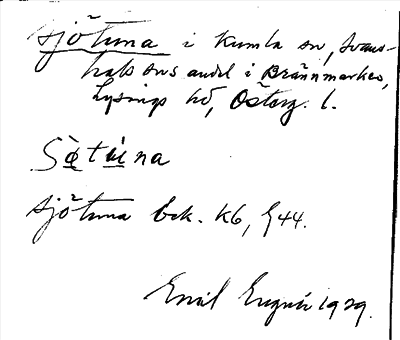 Sjötuna i Kumla sn, Svans-
hals sns andel i Brännmarken,
Lysings hd, Österg. l.
Sø̀túna
Sjötuna Eck. K6, G44.
Emil Engvér 1929.